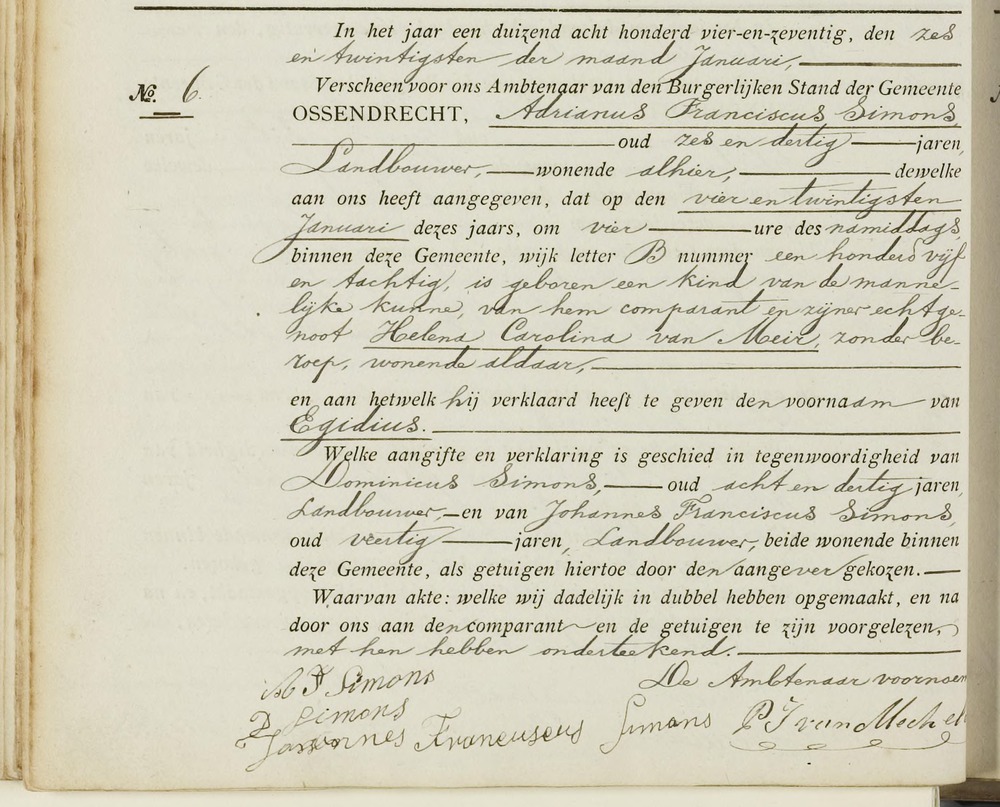 In het jaar een duizend acht honderd vier-en-zeventig, den zes
en twintigsten der maand Januari,
No. 6.
Verscheen voor ons Ambtenaar van den Burgerlijken Stand der Gemeente
OSSENDRECHT, Adrianus Franciscus Simons,
oud zes en dertig jaren,
Landbouwer, wonende alhier, dewelke
aan ons heeft aangegeven, dat op den vier en twintigsten
Januari dezes jaars, om vier ure des namiddags,
binnen deze Gemeente, wijk letter B nummer een honderd vijf
en tachtig, is geboren een kind van de manne-
lijke kunne, van hem comparant en zijner echtge-
noot Helena Carolina van Meir, zonder be-
roep, wonende aldaar,
en aan hetwelk hij verklaard heeft te geven den voornaam van
Egidius.
Welke aangifte en verklaring is geschied in tegenwoordigheid van
Dominicus Simons, oud acht en dertig jaren,
Landbouwer, en van Johannes Franciscus Simons,
oud veertig jaren, Landbouwer, beide wonende binnen
deze Gemeente, als getuigen hiertoe door den aangever gekozen.
Waarvan akte: welke wij dadelijk in dubbel hebben opgemaakt, en na
door ons aan den comparant en de getuigen te zijn voorgelezen,
met hen hebben onderteekend.
A F Simons
De Ambtenaar voornoem
D Simons
Johannes Franciscus Simons
P J van Mechel